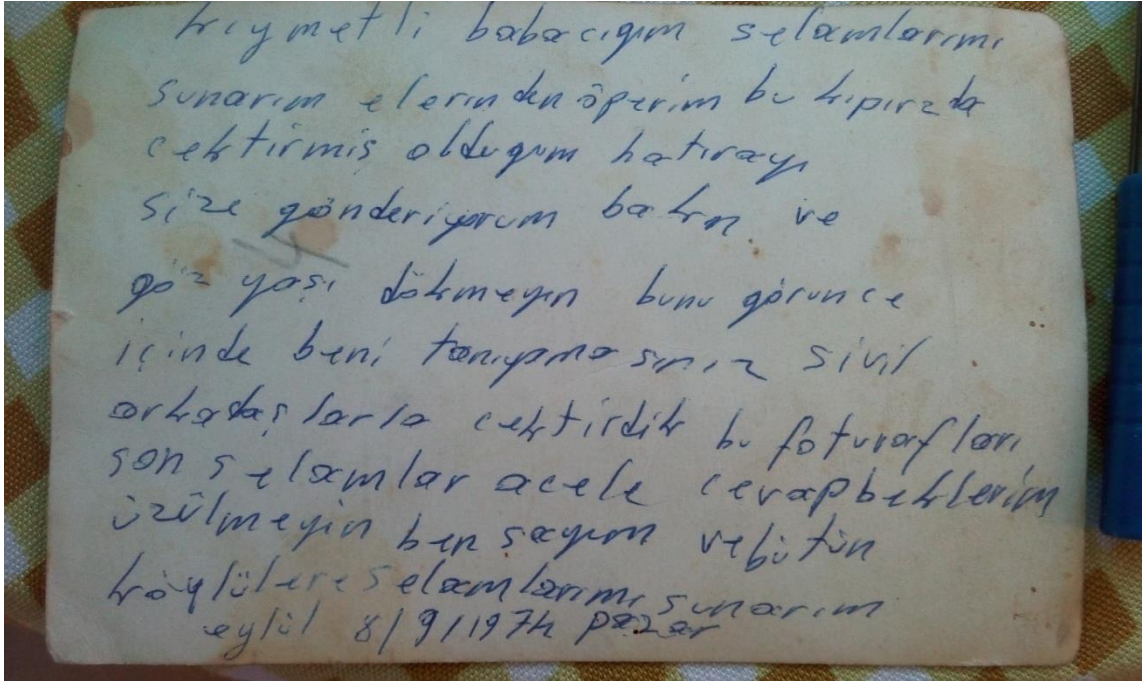 kıymetli babacıgım selamlarımı
sunarım elerinden öperim bu kıpırzda
cektirmiş oldugum hatırayı
size gönderiyorum bakın ve
göz yaşı dökmeyin bunu görunce
içinde beni tanıyamasınız sivil
arkadaşlarla cektirdik bu foturafları
son selamlar acele cevap beklerim
üzülmeyin ben sayım ve bütün
köylülere selamlarımı sunarım
eylül 8/9/1974 pazar